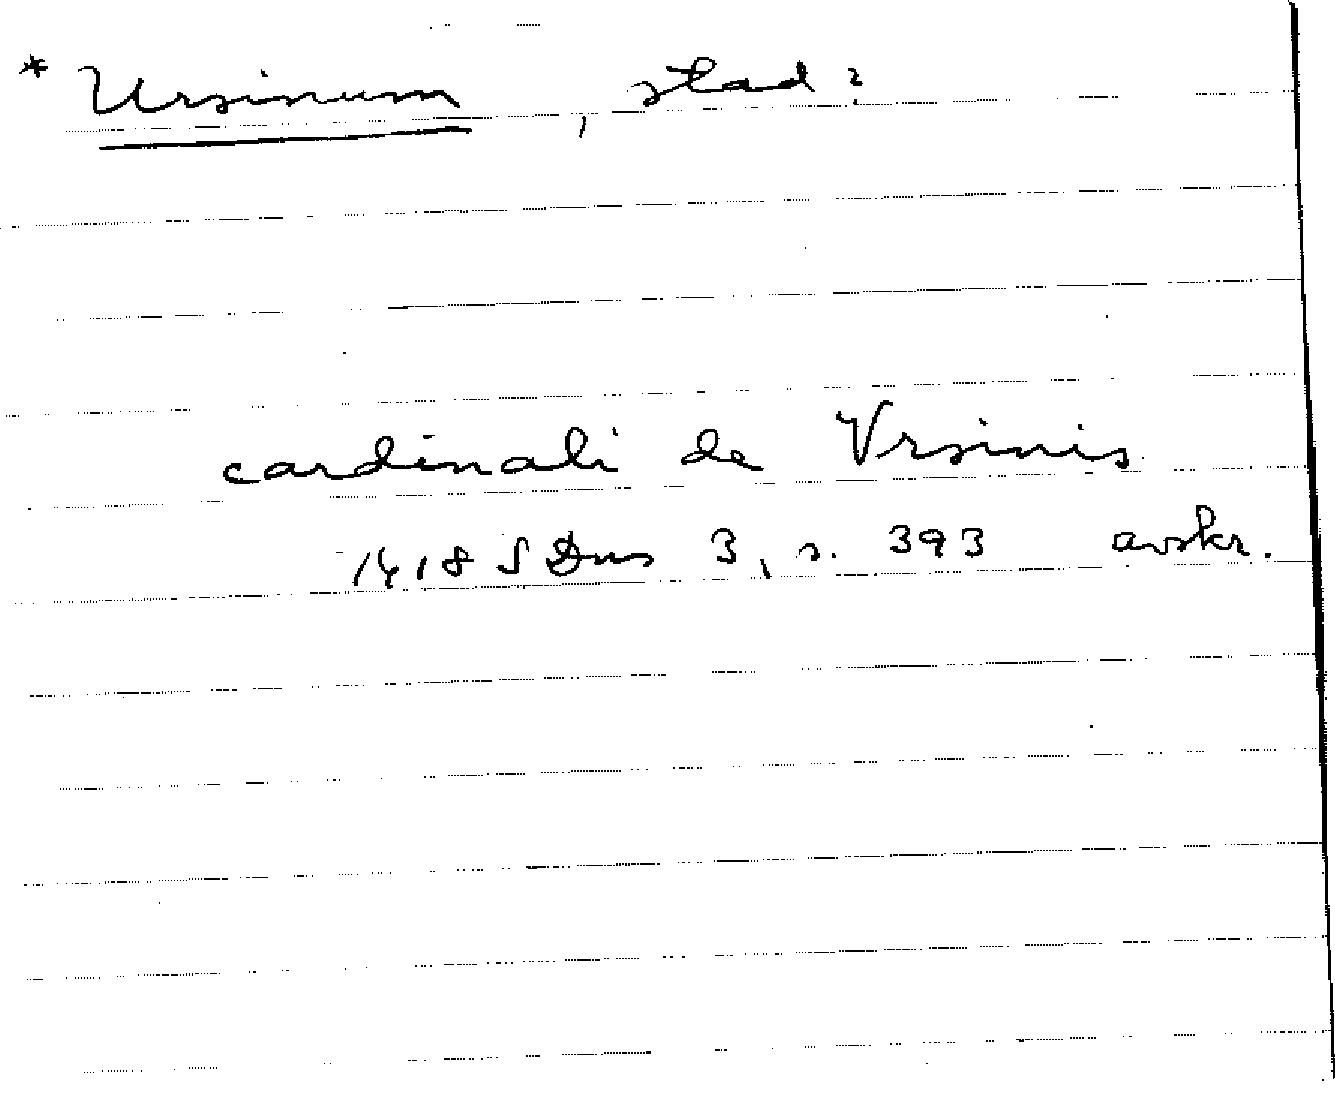 * Ursinum, stad?
cardinali de Vrsinis
1418 SDns 3, s. 393 avskr.